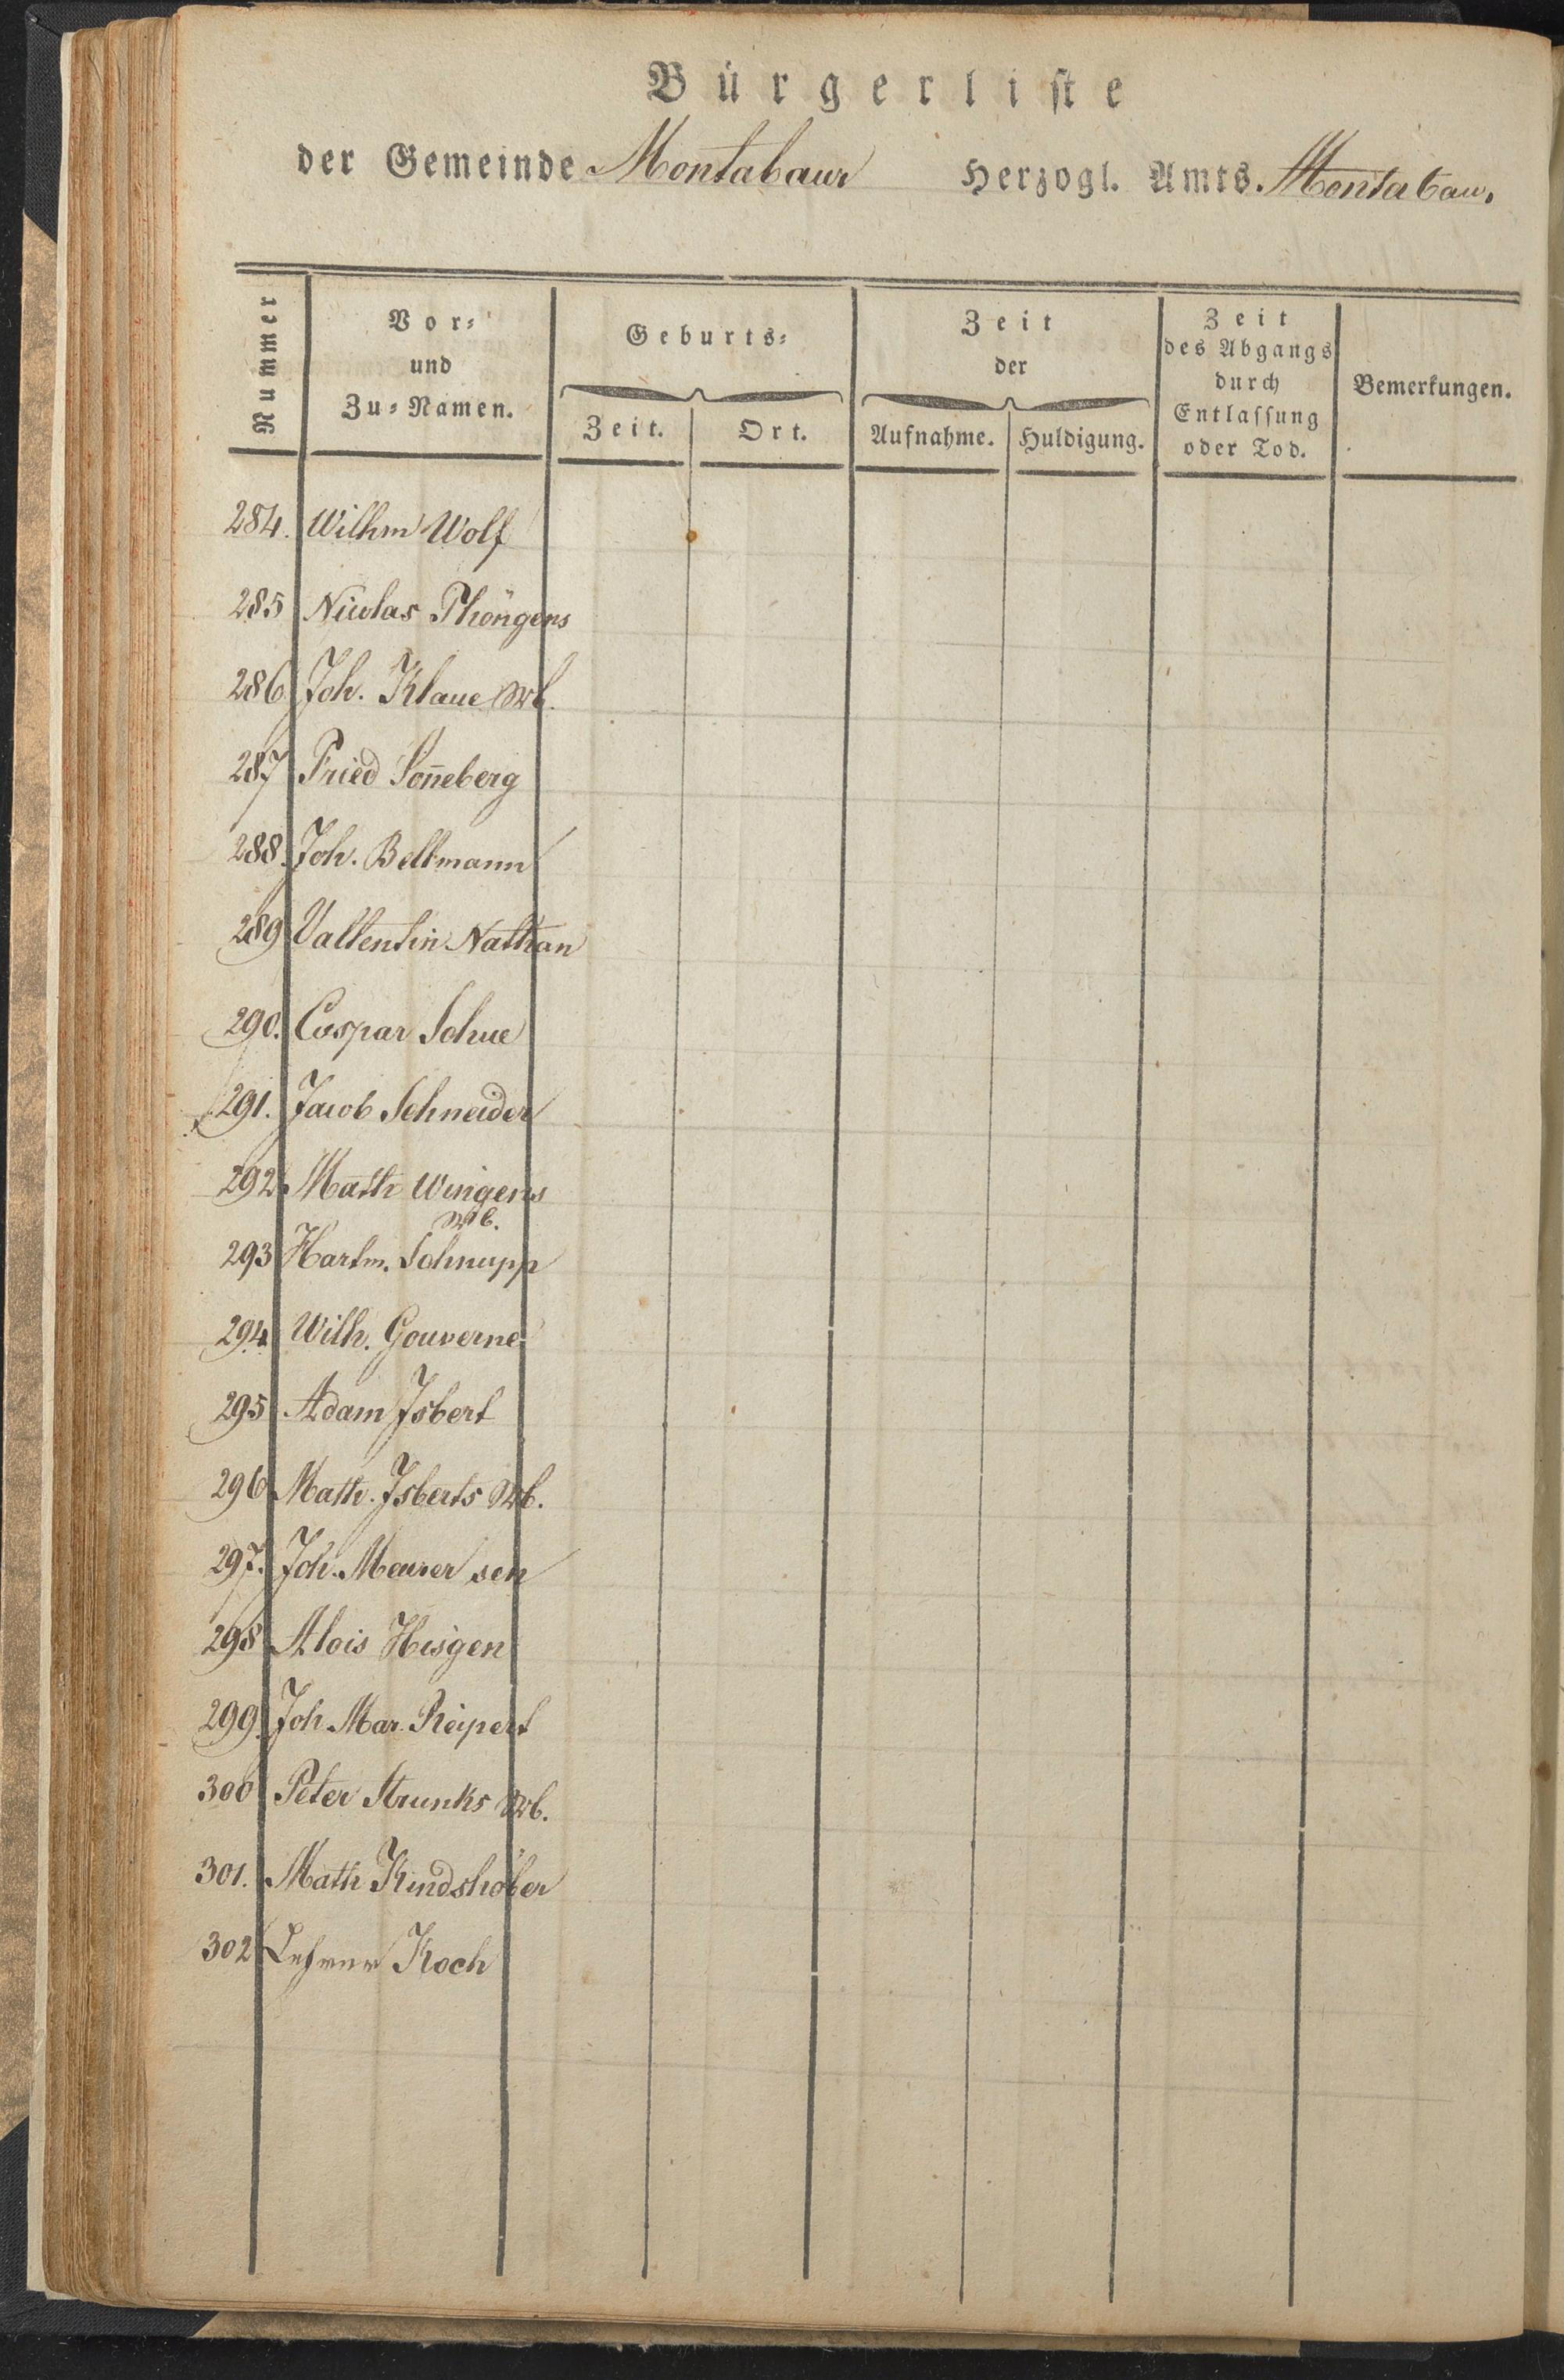 Bürgerliste
der Gemeinde Montabaur Herzogl. Amts Montabaur
Nummer
Vor-
und
Zu-Namen.
Geburts-
Zeit. Ort.
Zeit
der
Aufnahme. Huldigung.
Zeit
des Abgangs
durch
Entlassung
oder Tod.
Bemerkungen.
284. Wilhm Wolf
285 Nicolas Thöngens
286 Joh. Klaue Wb.
287 Fried Son̄eberg
288. Joh. Beltmann
289 Vallentin Nathan
290. Caspar Schue
291. Jacob Schneider
292. Math Wingens
Wb.
293 Hartm. Schnupp
294 Wilh. Gouverné
295 Adam Isbert
296 Math. Isberts Wb.
297. Joh. Meurer sen
298 Alois Hisgen
299. Joh. Mar. Reipert
300 Peter Strunks Wb.
301. Math Kindshöber
302 Lehrer Koch